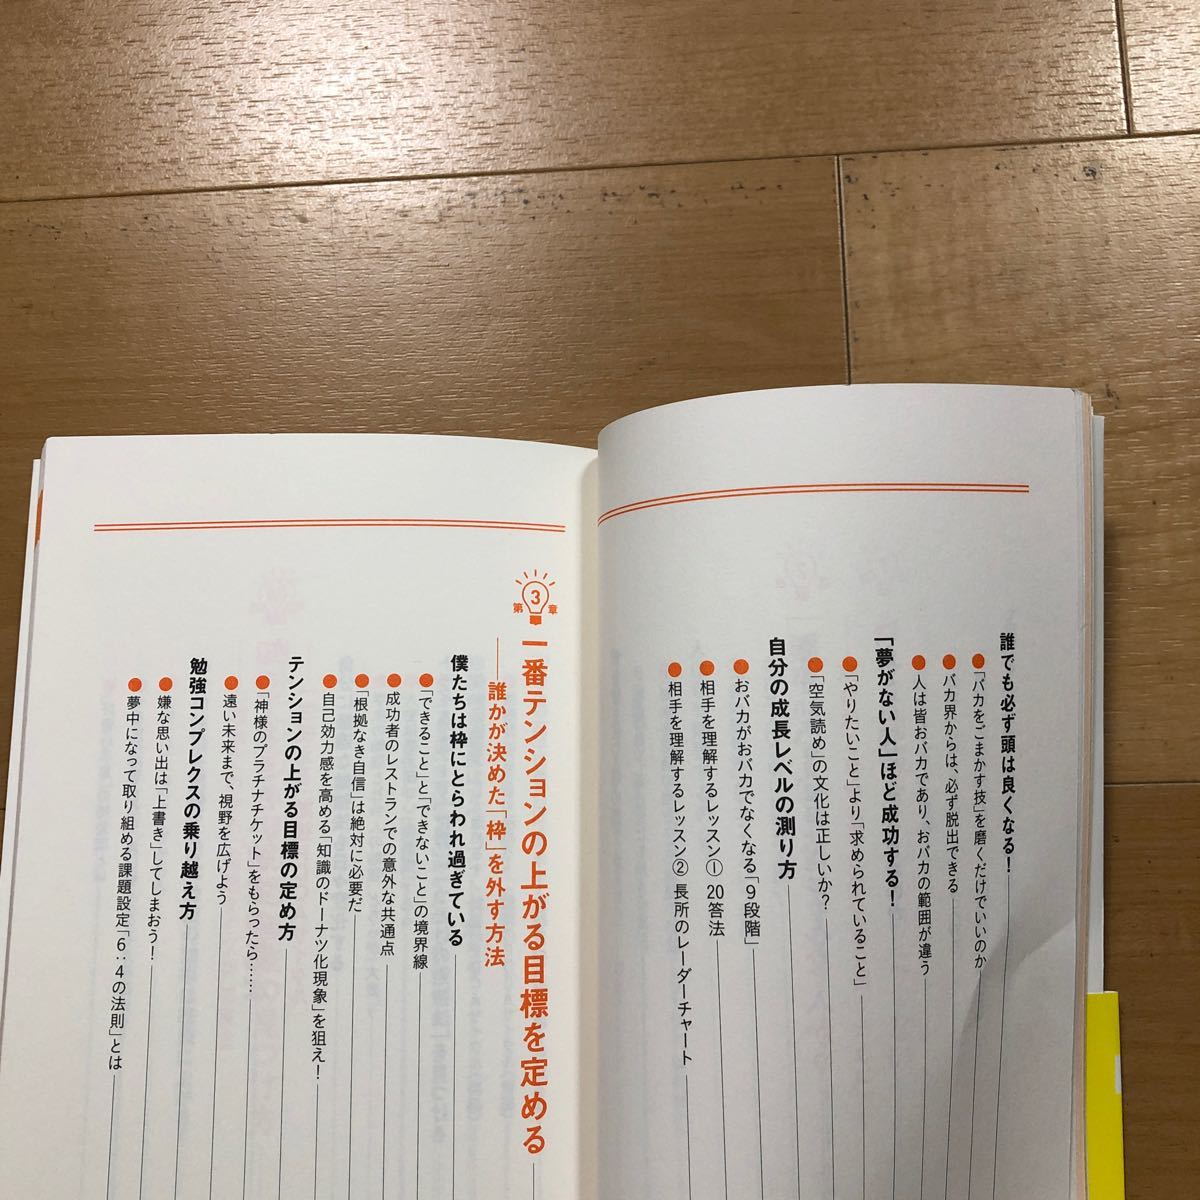 誰でも必ず頭は良くなる!
●「バカをごまかす技」を磨くだけでいいのか
●バカ界からは、必ず脱出できる
●人は皆おバカであり、おバカの範囲が違う
「夢がない人」ほど成功する!
●「やりたいこと」より「求められていること」
●「空気読め」の文化は正しいか?
自分の成長レベルの測り方
●おバカがおバカでなくなる「9段階」
●相手を理解するレッスン① 20答法
●相手を理解するレッスン② 長所のレーダーチャート
第3章
一番テンションの上がる目標を定める
――誰かが決めた「枠」を外す方法
僕たちは枠にとらわれ過ぎている
●「できること」と「できないこと」の境界線
●成功者のレストランでの意外な共通点
●「根拠なき自信」は絶対に必要だ
●自己効力感を高める「知識のドーナツ化現象」を狙え!
テンションの上がる目標の定め方
●「神様のプラチナチケット」をもらったら……
●遠い未来まで、視野を広げよう
勉強コンプレクスの乗り越え方
●嫌な思い出は「上書き」してしまおう!
●夢中になって取り組める課題設定「6:4の法則」とは